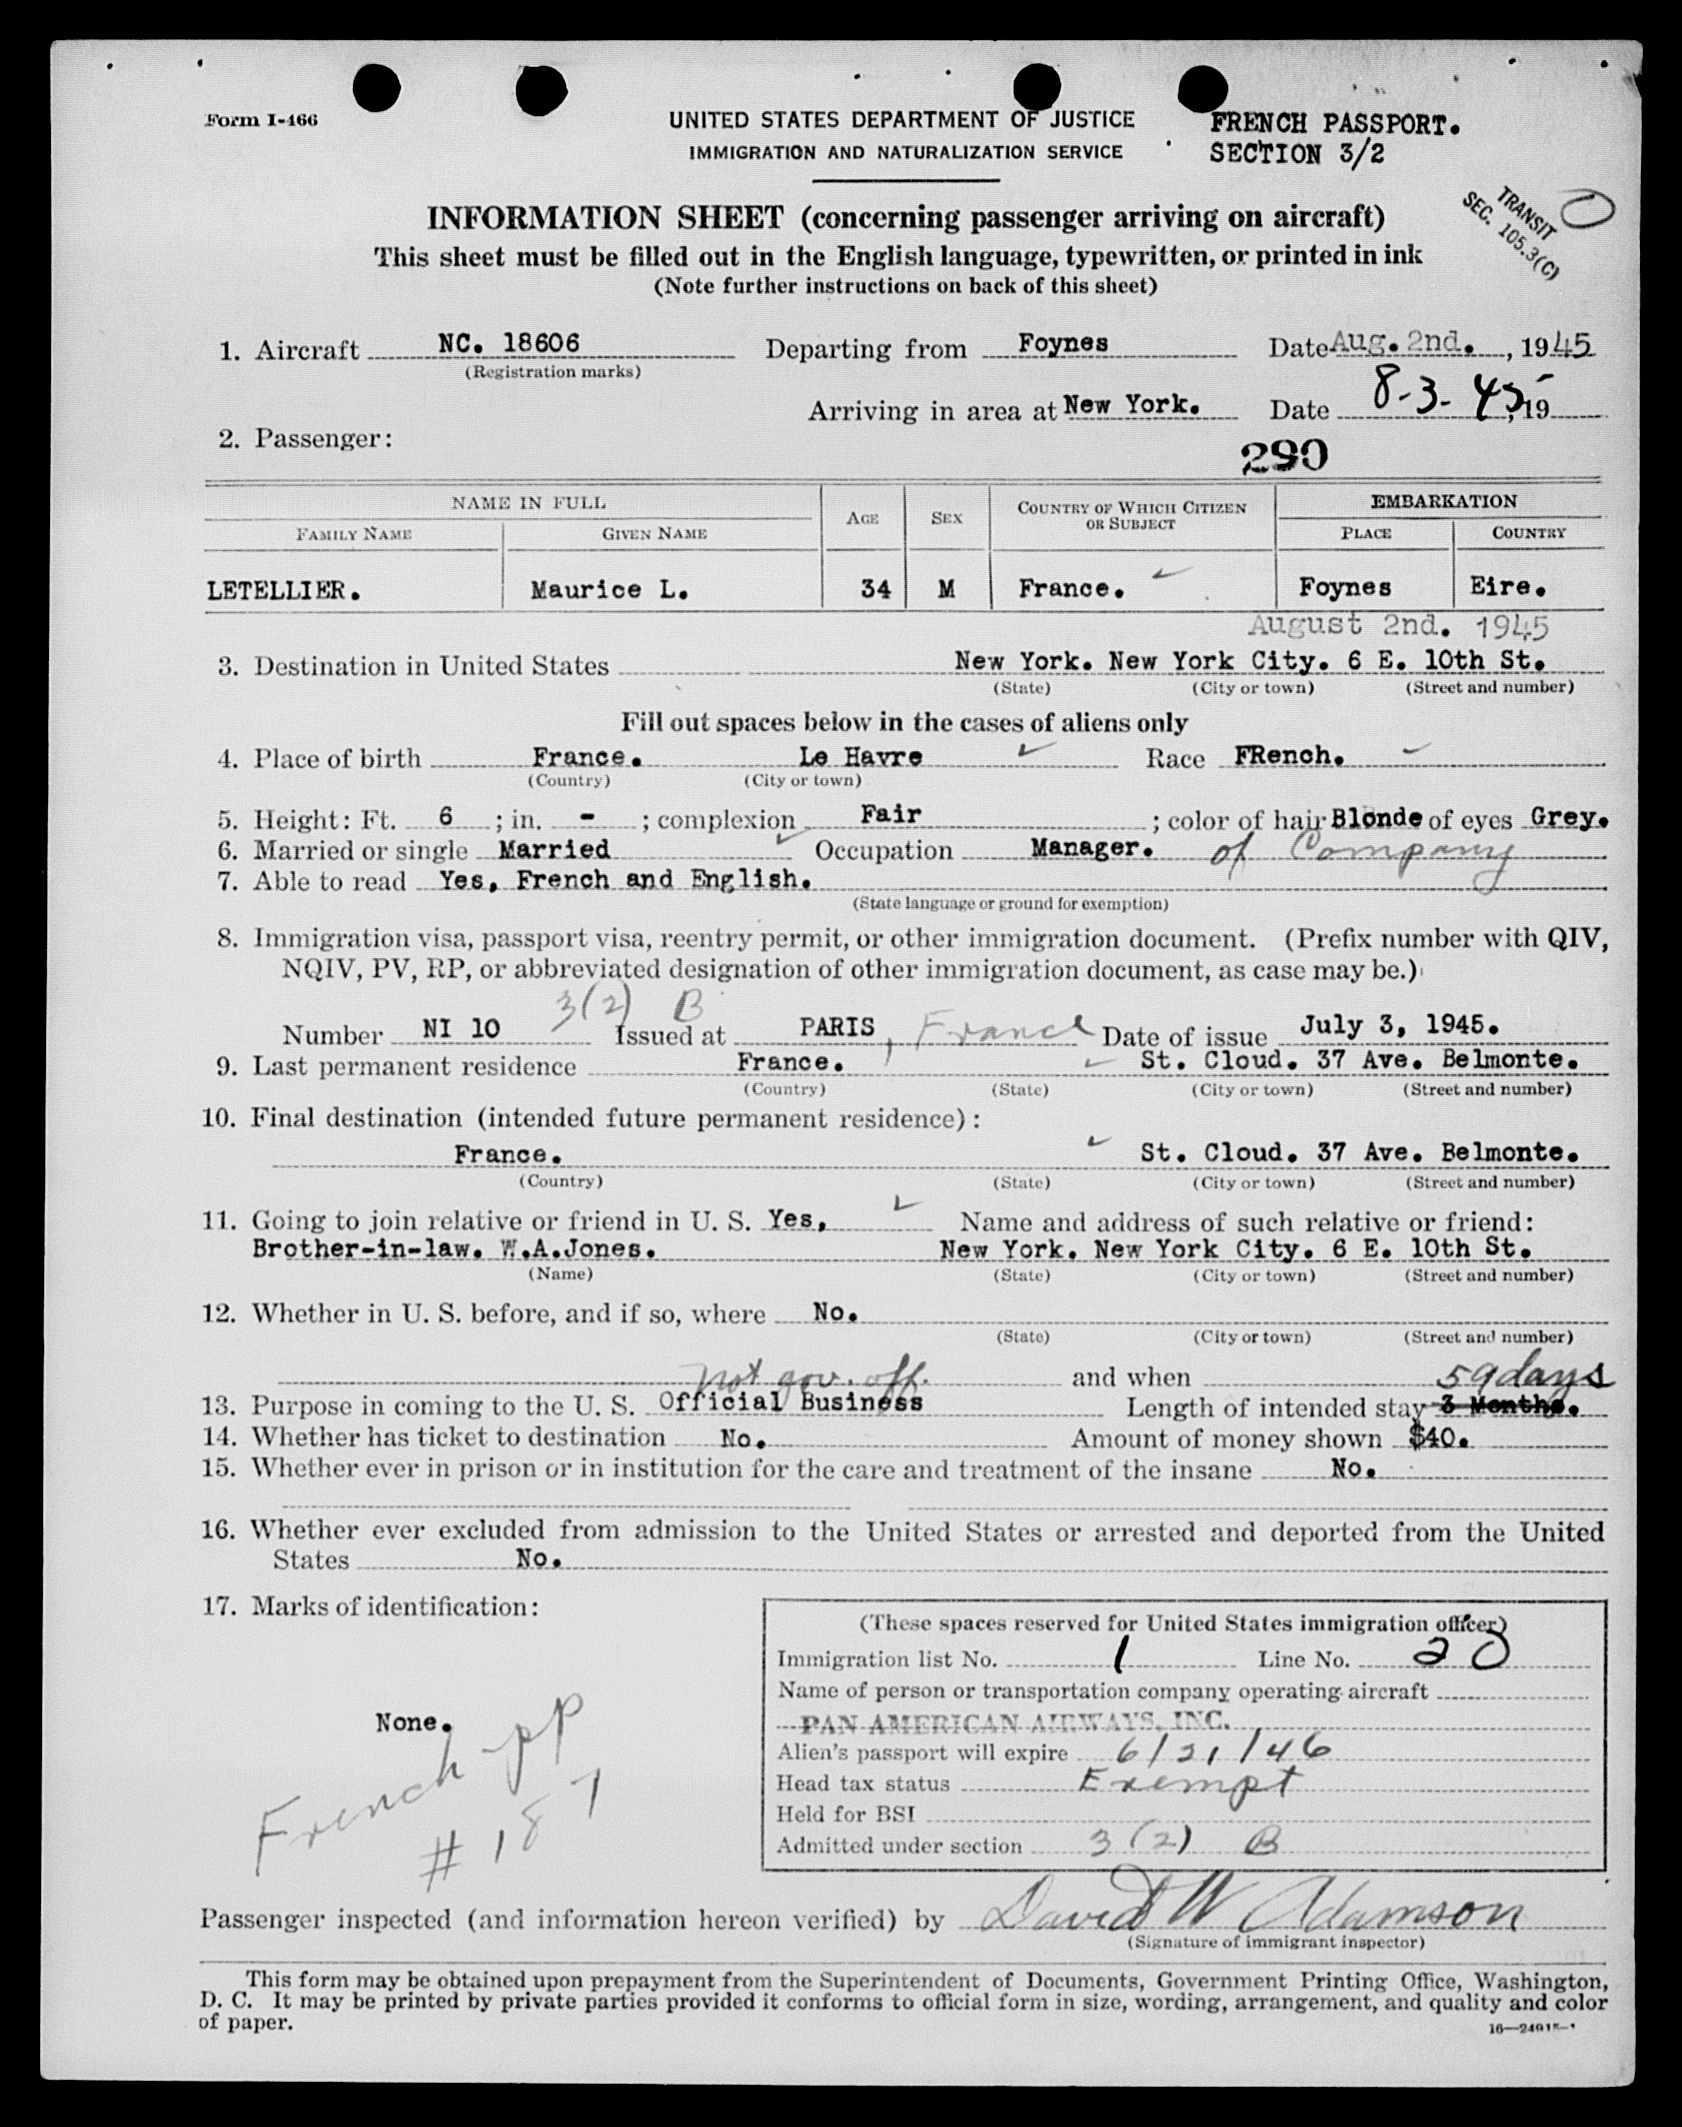 Form I-466
UNITED STATES DEPARTMENT OF JUSTICE
IMMIGRATION AND NATURALIZATION SERVICE
FRENCH PASSPORT.
SECTION 3/2
TRANSIT
SEC. 105.3(C)
INFORMATION SHEET (concerning passenger arriving on aircraft)
This sheet must be filled out in the English language, typewritten, or printed in ink
(Note further instructions on back of this sheet)
1. Aircraft NC. 18606 Departing from Foynes Date Aug. 2nd. , 1945
(Registration marks)
Arriving in area at New York. Date 8-3-45 , 19
2. Passenger:
290
NAME IN FULL AGE SEX COUNTRY OF WHICH CITIZEN OR SUBJECT EMBARKATION
FAMILY NAME GIVEN NAME PLACE COUNTRY
LETELLIER. Maurice L. 34 M France. Foynes Eire.
August 2nd. 1945
3. Destination in United States New York. New York City. 6 E. 10th St.
(State) (City or town) (Street and number)
Fill out spaces below in the cases of aliens only
4. Place of birth France. Le Havre Race FRench.
(Country) (City or town)
5. Height: Ft. 6 ; in. - ; complexion Fair ; color of hair Blonde of eyes Grey.
6. Married or single Married Occupation Manager. of Company
7. Able to read Yes, French and English.
(State language or ground for exemption)
8. Immigration visa, passport visa, reentry permit, or other immigration document. (Prefix number with QIV,
NQIV, PV, RP, or abbreviated designation of other immigration document, as case may be.)
3(2) B
Number NI 10 Issued at PARIS , France Date of issue July 3, 1945.
9. Last permanent residence France. St. Cloud. 37 Ave. Belmonte.
(Country) (State) (City or town) (Street and number)
10. Final destination (intended future permanent residence):
France. St. Cloud. 37 Ave. Belmonte.
(Country) (State) (City or town) (Street and number)
11. Going to join relative or friend in U. S. Yes, Name and address of such relative or friend:
Brother-in-law. W.A.Jones. New York. New York City. 6 E. 10th St.
(Name) (State) (City or town) (Street and number)
12. Whether in U. S. before, and if so, where No.
(State) (City or town) (Street and number)
not gov. off. and when 59 days
13. Purpose in coming to the U. S. Official Business Length of intended stay 3 Months.
14. Whether has ticket to destination No. Amount of money shown $40.
15. Whether ever in prison or in institution for the care and treatment of the insane No.
16. Whether ever excluded from admission to the United States or arrested and deported from the United
States No.
17. Marks of identification:
None.
French pp
# 187
(These spaces reserved for United States immigration officer)
Immigration list No. 1 Line No. 20
Name of person or transportation company operating aircraft
PAN AMERICAN AIRWAYS, INC.
Alien's passport will expire 6/21/46
Head tax status Exempt
Held for BSI
Admitted under section 3(2) B
Passenger inspected (and information hereon verified) by David W Adamson
(Signature of immigrant inspector)
This form may be obtained upon prepayment from the Superintendent of Documents, Government Printing Office, Washington,
D. C. It may be printed by private parties provided it conforms to official form in size, wording, arrangement, and quality and color
of paper.